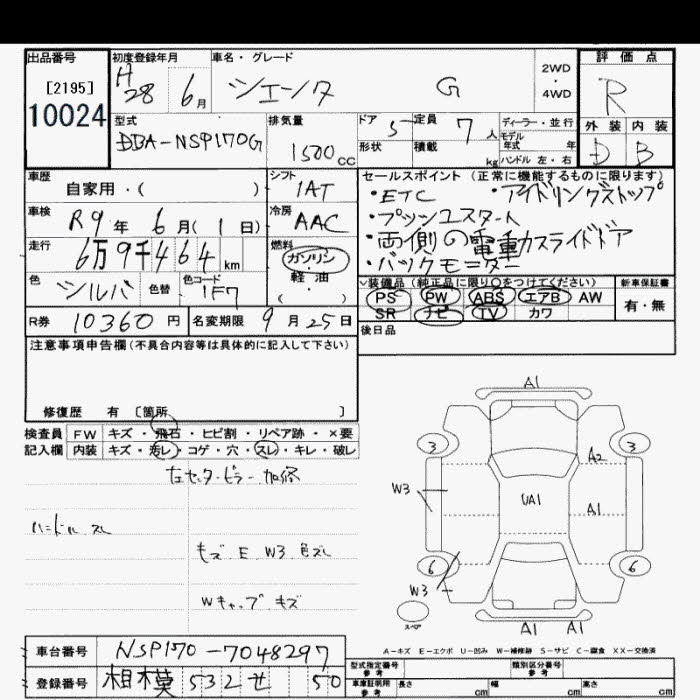 出品番号
[2195]
10024
初度登録年月
H28 6月
車名・グレード
シエンタ G
2WD
・
4WD
評価点
R
外装 内装
D B
型式
DBA-NSP170G
排気量
1500cc
ドア 5
定員 7人
形状
積載 kg
ディーラー・並行
モデル年式 年
ハンドル 左・右
車歴
自家用・( )
シフト
IAT
セールスポイント (正常に機能するものに限ります)
・ETC ・アイドリングストップ
・プッシュスタート
・両側の電動スライドドア
・バックモニター
車検
R9年 6月( 1日)
冷房
AAC
走行
6万9千464km
燃料
ガソリン
・
軽油
( )
色
シルバ
色替
色コード
1F7
装備品 (純正品に限り○をつけてください)
PS PW ABS エアB AW
SR ナビ TV カワ
新車保証書
有・無
R券 10360円
名変期限 9月25日
後日品
注意事項申告欄(不具合内容等は具体的に記入して下さい)
修復歴 有 〔箇所 〕
検査員 FW キズ・飛石・ヒビ割・リペア跡・×要
記入欄 内装 キズ・汚レ・コゲ・穴・スレ・キレ・破レ
左センターピラー加修
ハンドル スレ
キズ E W3 色ズレ
Wキャップ キズ
A1
3 3
A2
W3
UA1
A1
6 6
W3
スペア
A1 A1
A-キズ E-エクボ U-凹み W-補修跡 S-サビ C-腐食 XX-交換済
車台番号 NSP170-7048297
登録番号 相模 532 せ 50
型式指定番号 参考
類別区分番号 参考
車庫証明用 参考
長さ cm
幅 cm
高さ cm